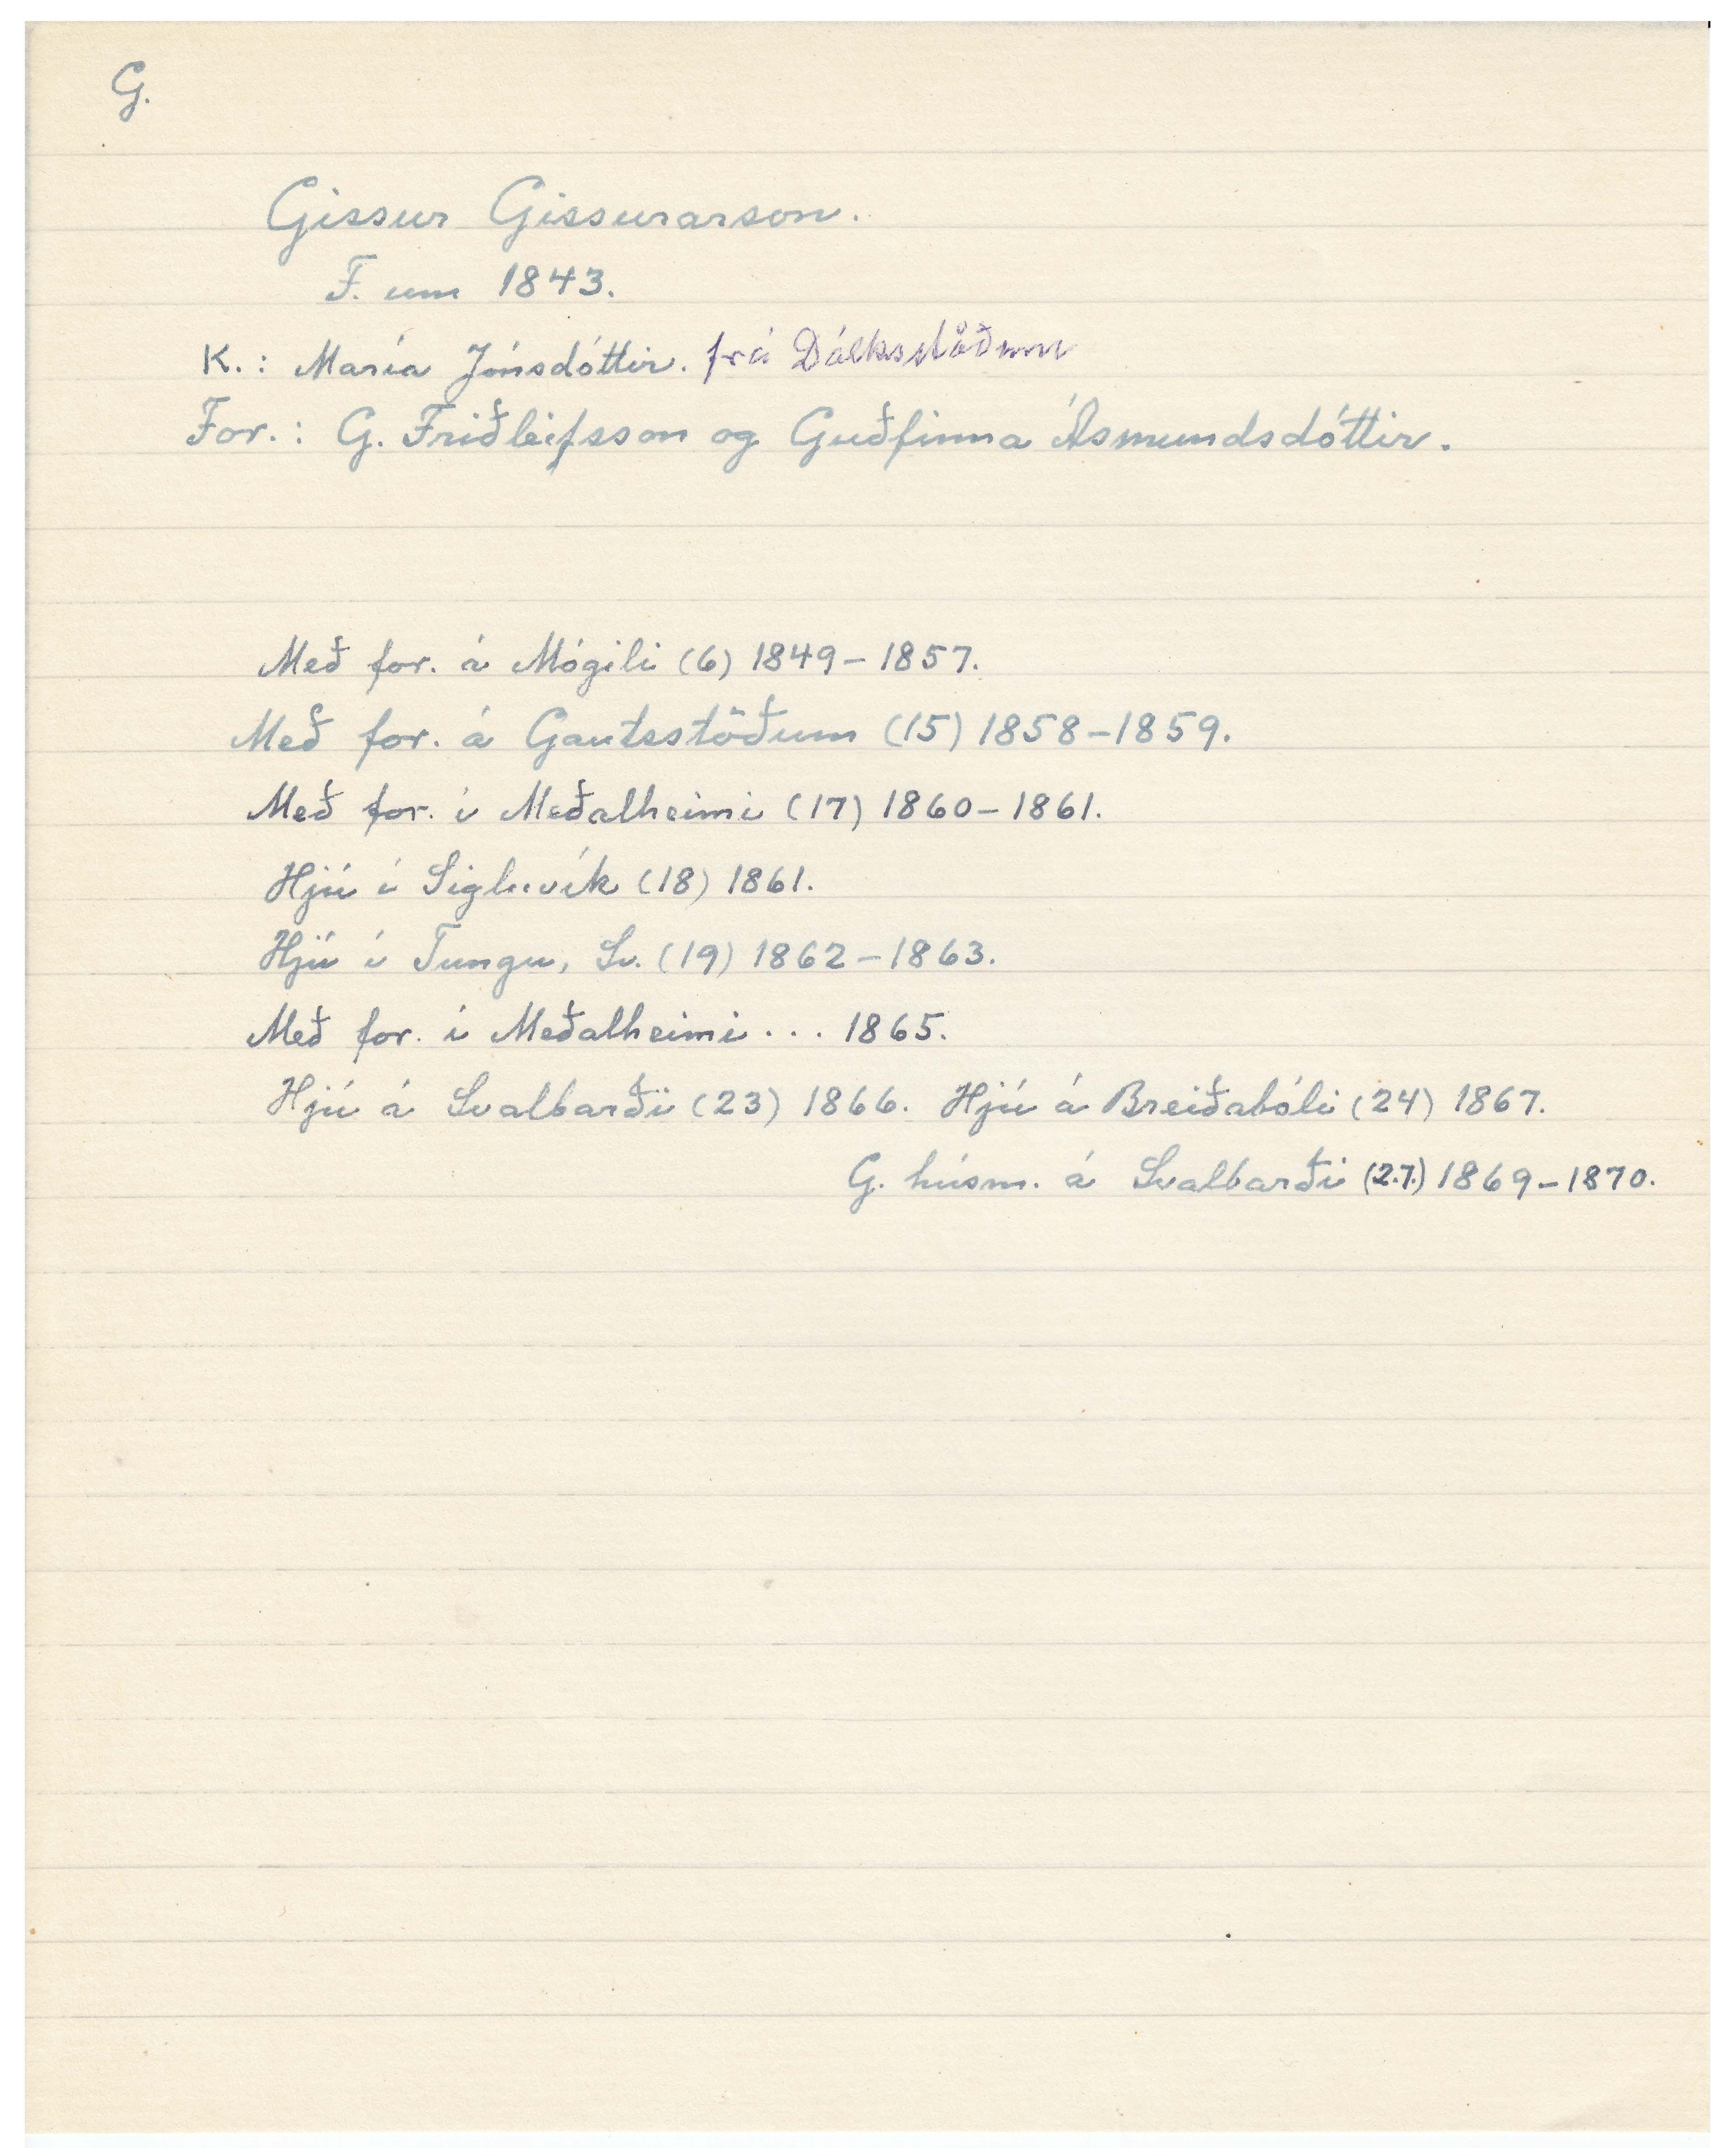 G.
Gissur Gissurarson.
F. um 1843.
K.: María Jónsdóttir. frá Dálksstöðum
For.: G. Friðleifsson og Guðfinna Ásmundsdóttir.
Með for. á Mógili (6) 1849-1857.
Með for. á Gautsstöðum (15) 1858-1859.
Með for. í Meðalheimi (17) 1860-1861.
Hjú í Sigluvík (18) 1861.
Hjú í Tungu, Sv. (19) 1862-1863.
Með for. í Meðalheimi... 1865.
Hjú á Svalbarði (23) 1866. Hjú á Breiðabóli (24) 1867.
G. húsm. á Svalbarði (27.) 1869-1870.